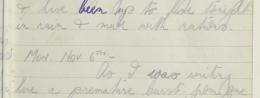 & have been up to Fosse tonight
in rain & mud with rations.
Mon. Nov 6th:-
As I was writing
here a premature burst from one